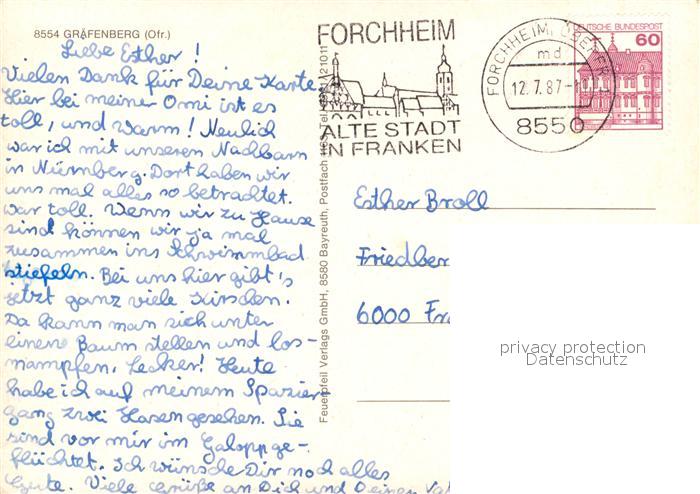 8554 GRÄFENBERG (Ofr.)
Liebe Esther!
Vielen Dank für Deine Karte
Hier bei meiner Omi ist es
toll, und warm! Neulich
war ich mit unseren Nachbarn
in Nürnberg. Dort haben wir
uns mal alles so betrachtet.
war toll. Wenn wir zu Hause
sind können wir ja mal
zusammen ins Schwimmbad
stiefeln. Bei uns hier gibt's
jetzt ganz viele Kirschen.
Da kann man sich unter
einen Baum stellen und los-
mampfen. Lecker! Heute
habe ich auf meinem Spazier
gang zwei Hasen gesehen. Sie
sind vor mir im Galopp ge-
flüchtet. Ich wünsche Dir noch alles
Gute. Viele Grüße an Dich und Deinen Vat
Feuerpfeil Verlags GmbH, 8580 Bayreuth, Postfach Tel. 21011
FORCHHEIM
ALTE STADT
IN FRANKEN
FORCHHEIM, OBERFR
md
12.7.87-
8550
DEUTSCHE BUNDESPOST
60
Esther Broll
Friedber
6000 Fr
privacy protection
Datenschutz